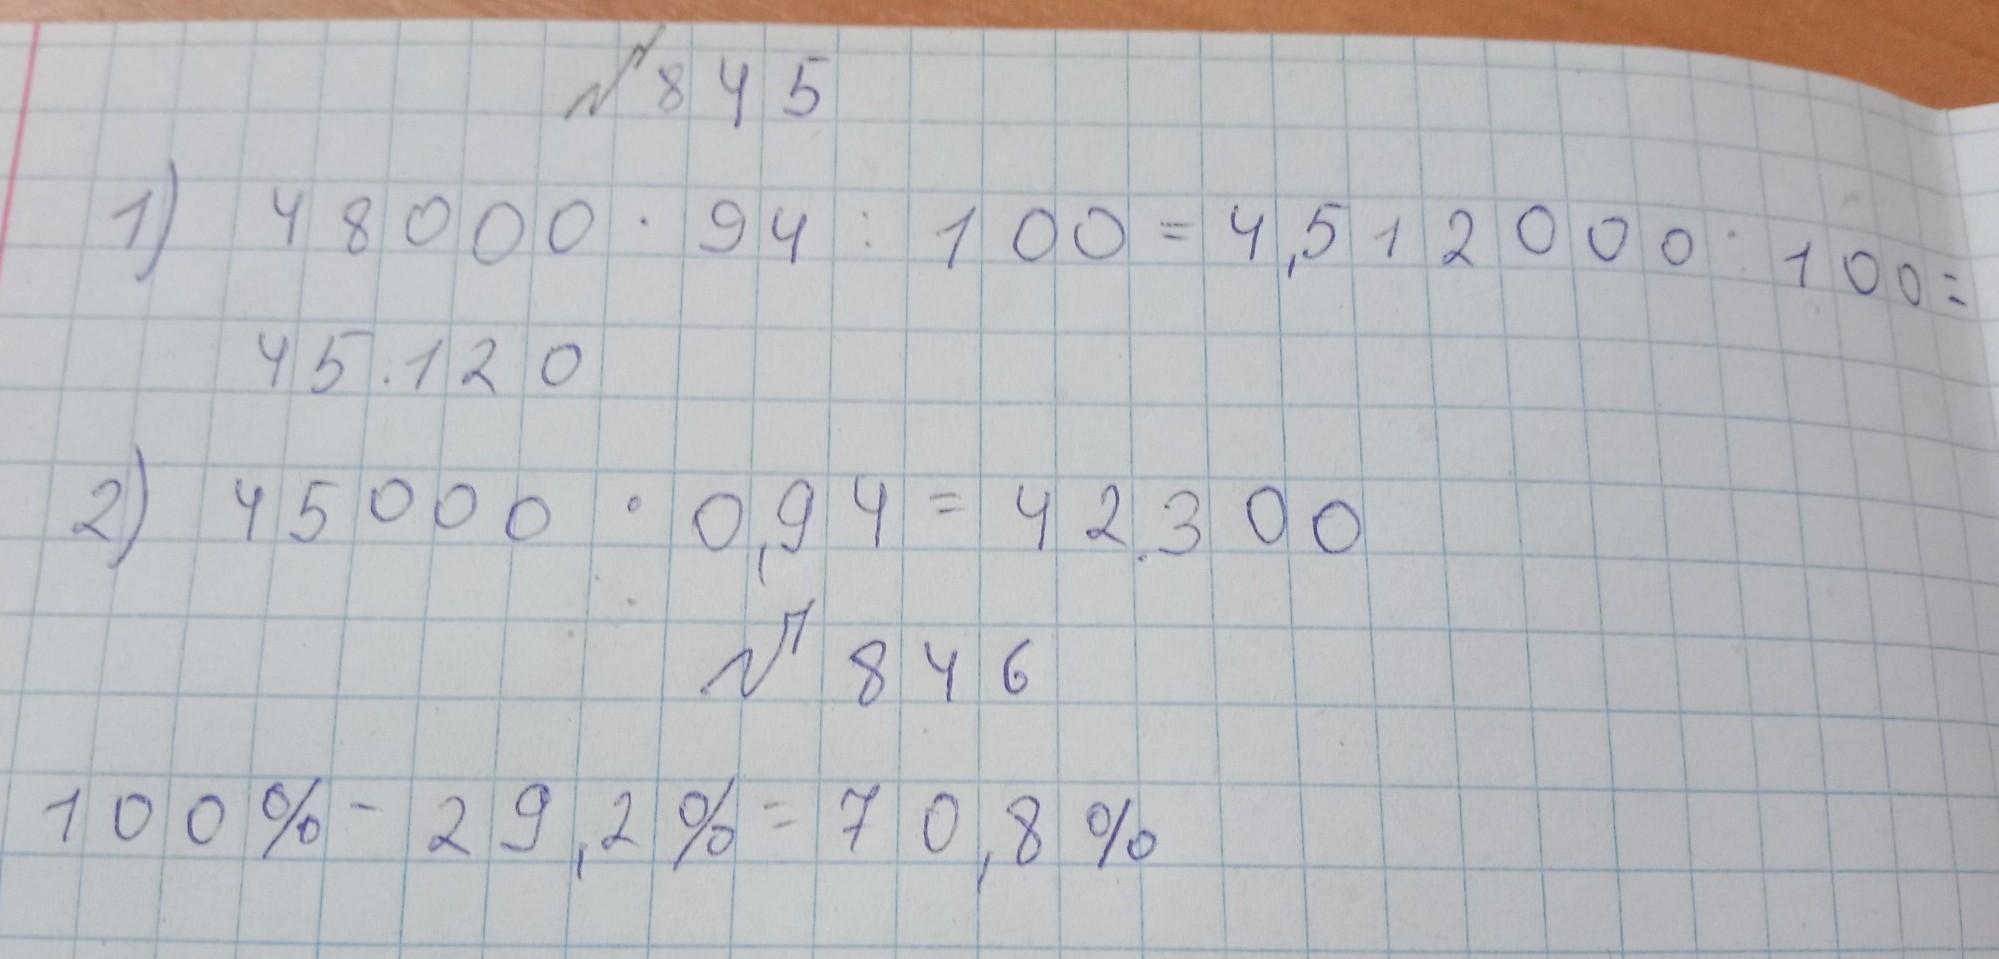 №845
1) 48000 · 94 : 100 = 4,512000 : 100 =
45.120
2) 45000 · 0,94 = 42.300
№ 846
100% - 29,2% = 70,8%